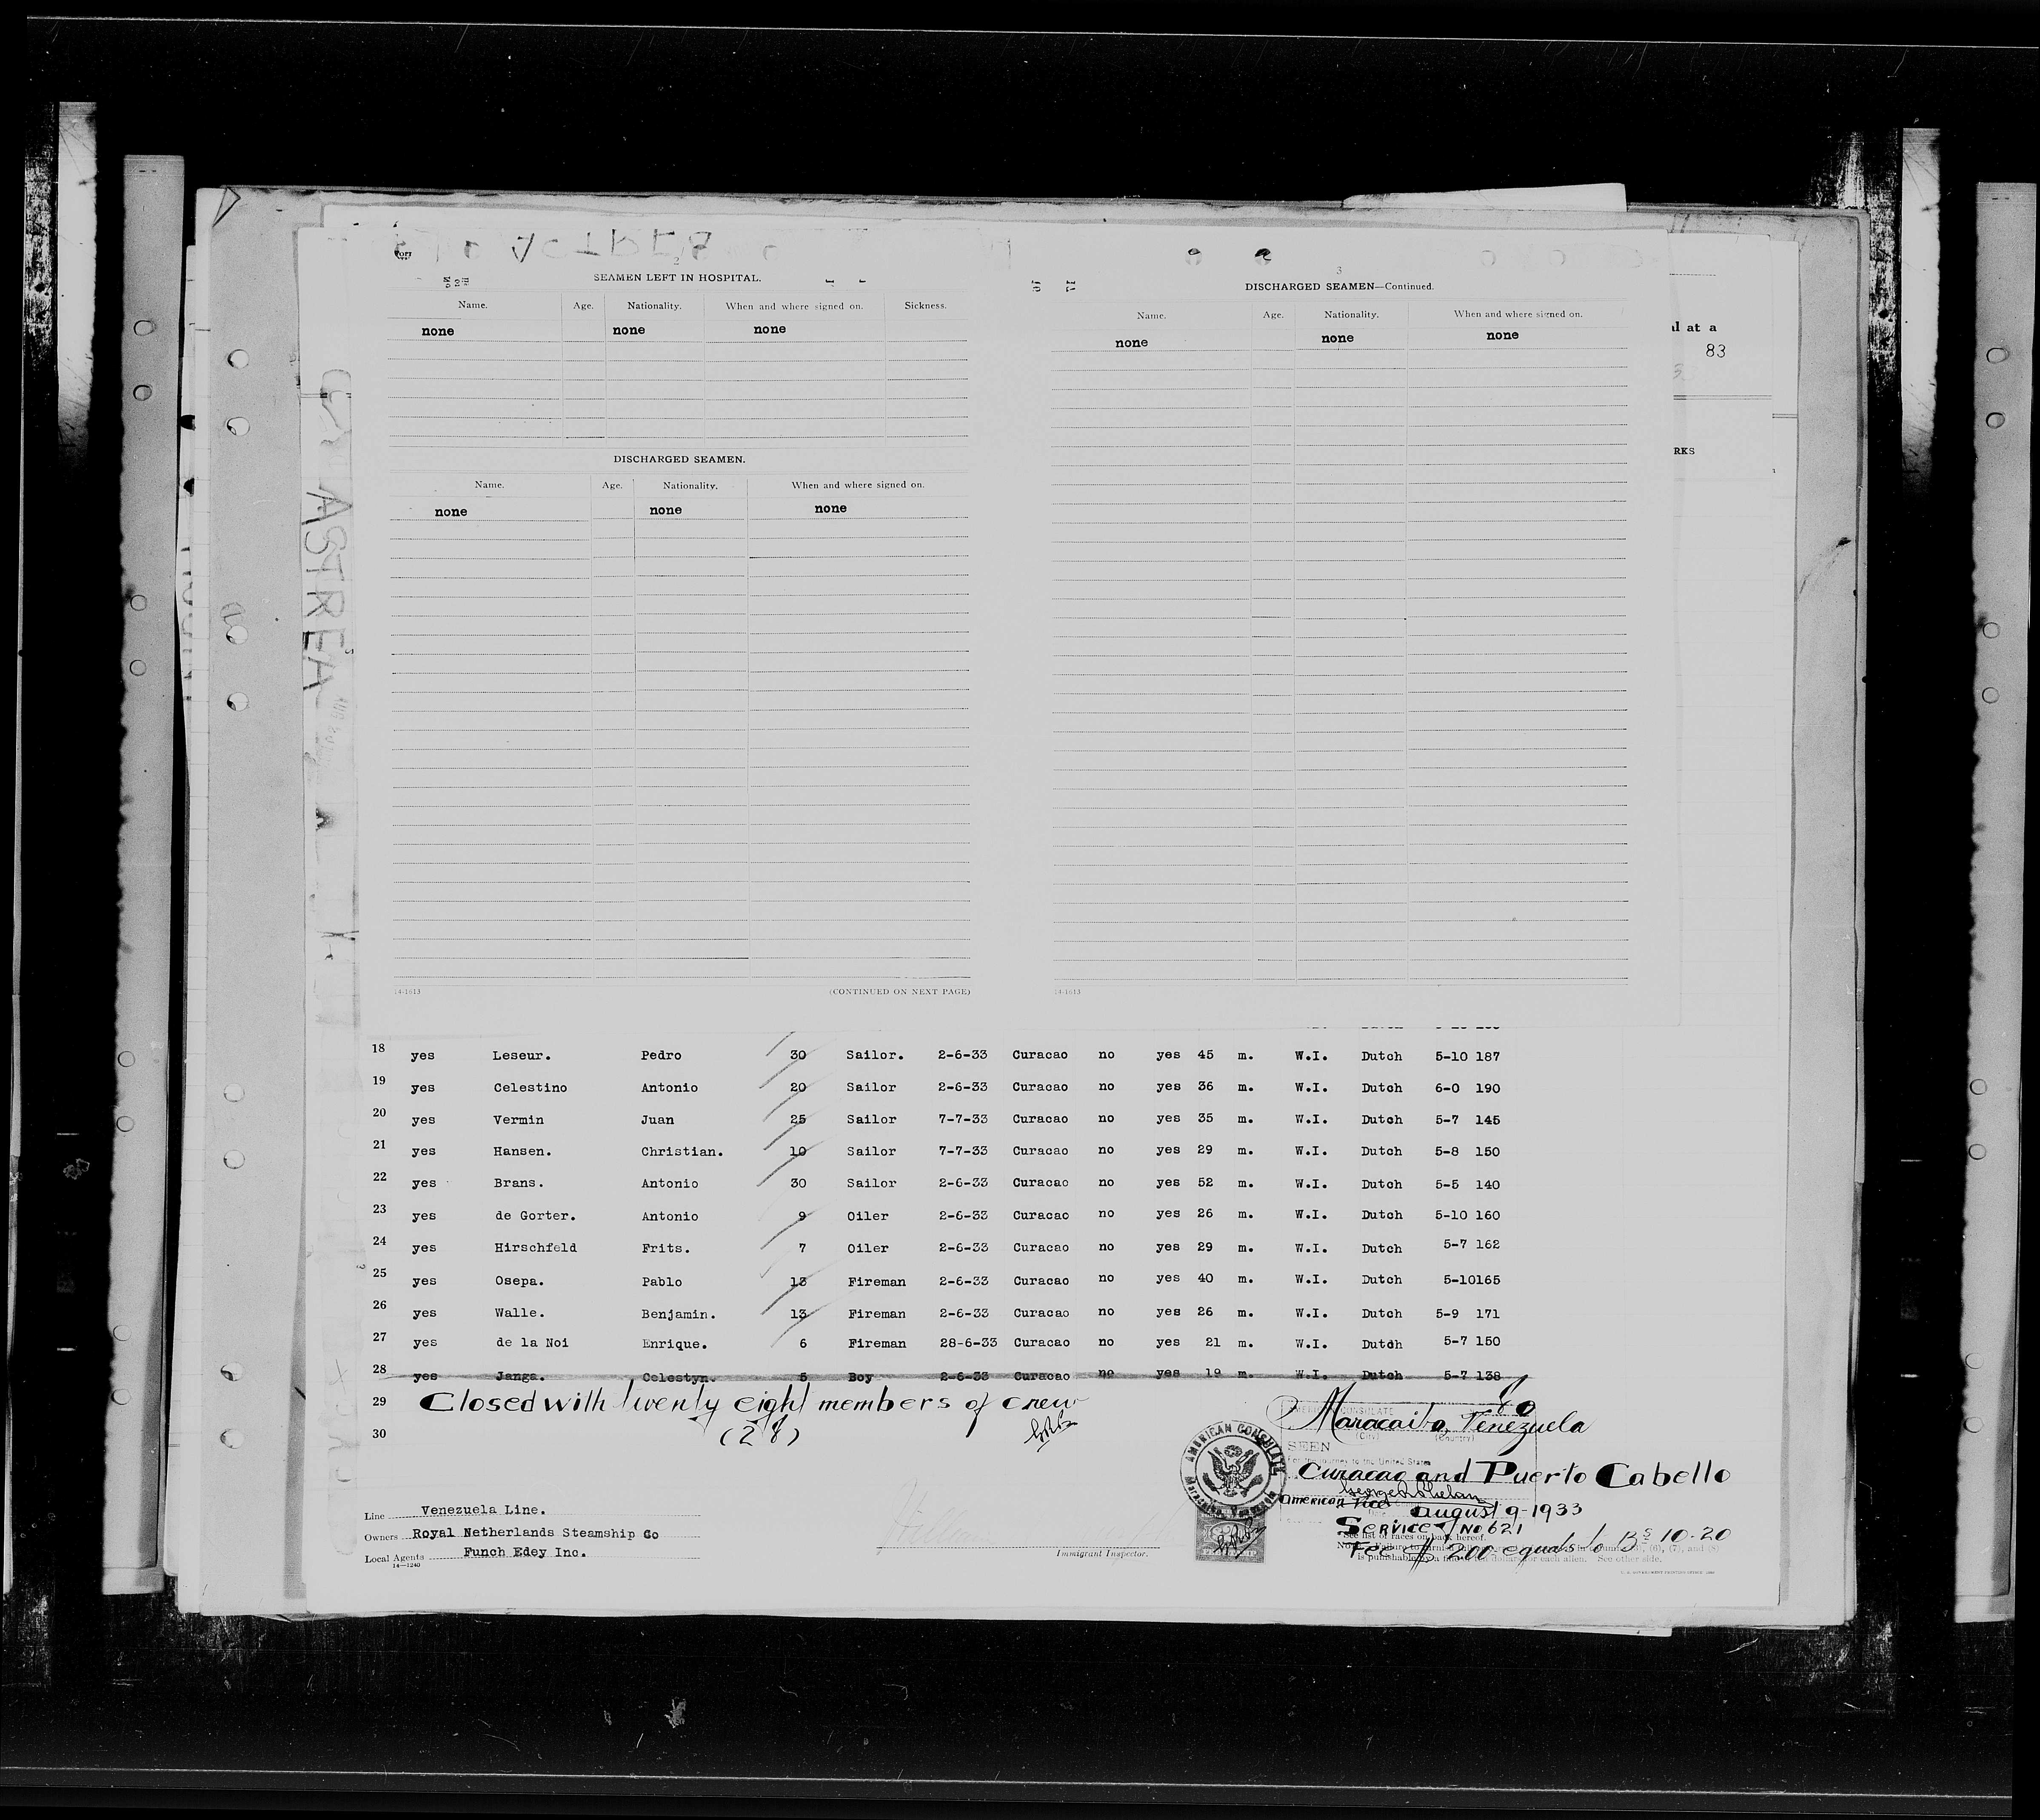 2
SEAMEN LEFT IN HOSPITAL.
Name. Age. Nationality. When and where signed on. Sickness.
none none none
DISCHARGED SEAMEN.
Name. Age. Nationality. When and where signed on.
none none none
14-1613 (CONTINUED ON NEXT PAGE)
3
DISCHARGED SEAMEN—Continued.
Name. Age. Nationality. When and where signed on.
none none none
14-1613
al at a
83
RKS
ASTREA
18 yes Leseur. Pedro 30 Sailor. 2-6-33 Curacao no yes 45 m. W.I. Dutch 5-10 187
19 yes Celestino Antonio 20 Sailor 2-6-33 Curacao no yes 36 m. W.I. Dutch 6-0 190
20 yes Vermin Juan 25 Sailor 7-7-33 Curacao no yes 35 m. W.I. Dutch 5-7 145
21 yes Hansen. Christian. 10 Sailor 7-7-33 Curacao no yes 29 m. W.I. Dutch 5-8 150
22 yes Brans. Antonio 30 Sailor 2-6-33 Curacao no yes 52 m. W.I. Dutch 5-5 140
23 yes de Gorter. Antonio 9 Oiler 2-6-33 Curacao no yes 26 m. W.I. Dutch 5-10 160
24 yes Hirschfeld Frits. 7 Oiler 2-6-33 Curacao no yes 29 m. W.I. Dutch 5-7 162
25 yes Osepa. Pablo 13 Fireman 2-6-33 Curacao no yes 40 m. W.I. Dutch 5-10165
26 yes Walle. Benjamin. 13 Fireman 2-6-33 Curacao no yes 26 m. W.I. Dutch 5-9 171
27 yes de la Noi Enrique. 6 Fireman 28-6-33 Curacao no yes 21 m. W.I. Dutch 5-7 150
28 yes Janga. Celestyn. 5 Boy 2-6-33 Curacao no yes 19 m. W.I. Dutch 5-7 138
29 Closed with twenty eight members of crew
30 (28)
AMERICAN CONSULATE
Maracaibo, Venezuela
(City) (Country)
SEEN
For the journey to the United States
Curacao and Puerto Cabello
American Vice
August 9-1933
Service No 621
See list of races on back hereof.
Fee $ 200 equals to Bs 10.20
is punishable by a fine of ten dollars for each alien. See other side.
AMERICAN CONSULATE
Line Venezuela Line.
Owners Royal Netherlands Steamship Co
Local Agents Funch Edey Inc.
14-1240
Immigrant Inspector.